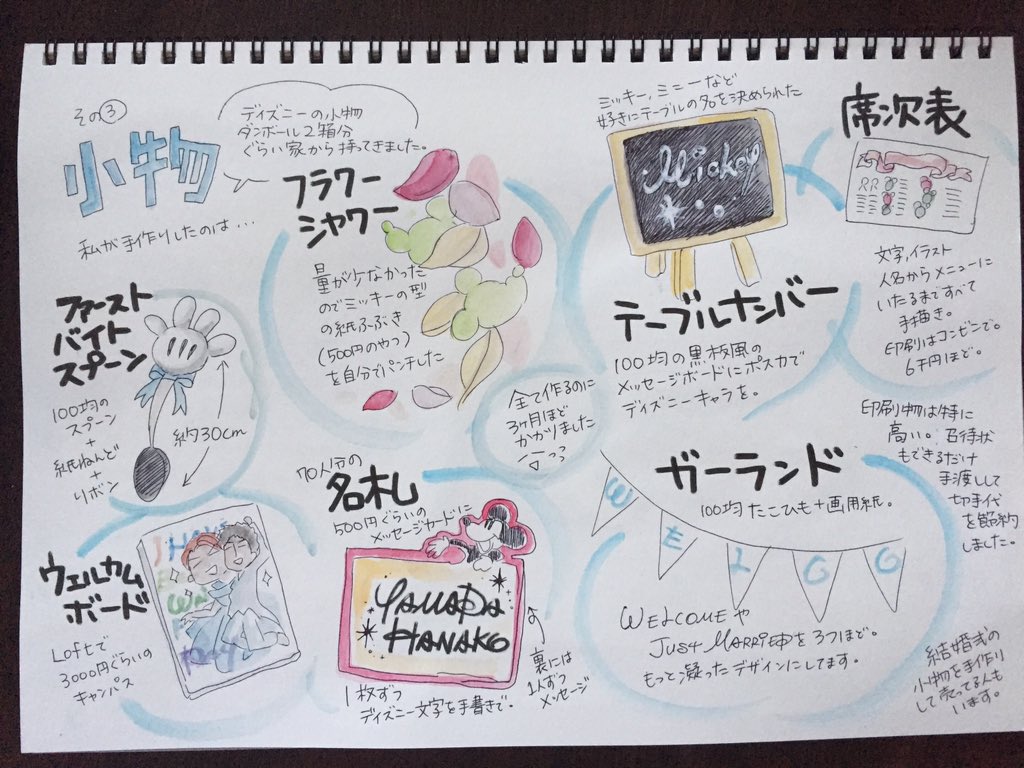 その③
小物
ディズニーの小物
ダンボール2箱分
ぐらい家から持ってきました。
私が手作りしたのは…
フラワー
シャワー
量が少なかった
のでミッキーの型
の紙ふぶき
(500円のやつ)
を自分でパンチした
ミッキー,ミニーなど
好きにテーブルの名を決められた
Mickey
テーブルナンバー
100均の黒板風の
メッセージボードにポスカで
ディズニーキャラを。
席次表
文字,イラスト
人名からメニューに
いたるまですべて
手描き。
印刷はコンビニで。
6千円ほど。
ファースト
バイト
スプーン
100均の
スプーン
+
紙ねんど
+
リボン
約30cm
全て作るのに
3ヶ月ほど
かかりました
印刷物は特に
高い。招待状
もできるだけ
手渡しして
切手代
を節約
しました。
ウェルカム
ボード
Loftで
3000円ぐらいの
キャンバス
70人分の
名札
500円ぐらいの
メッセージカードに
YAMADA
HANAKO
1枚ずつ
ディズニー文字を手書きで。
裏には
1人ずつ
メッセージ
ガーランド
100均たこひも+画用紙。
WELCO
WELCOMEや
JUST MARRIEDを3つほど。
もっと凝ったデザインにしてます。
結婚式の
小物を手作り
して売ってる人も
います。